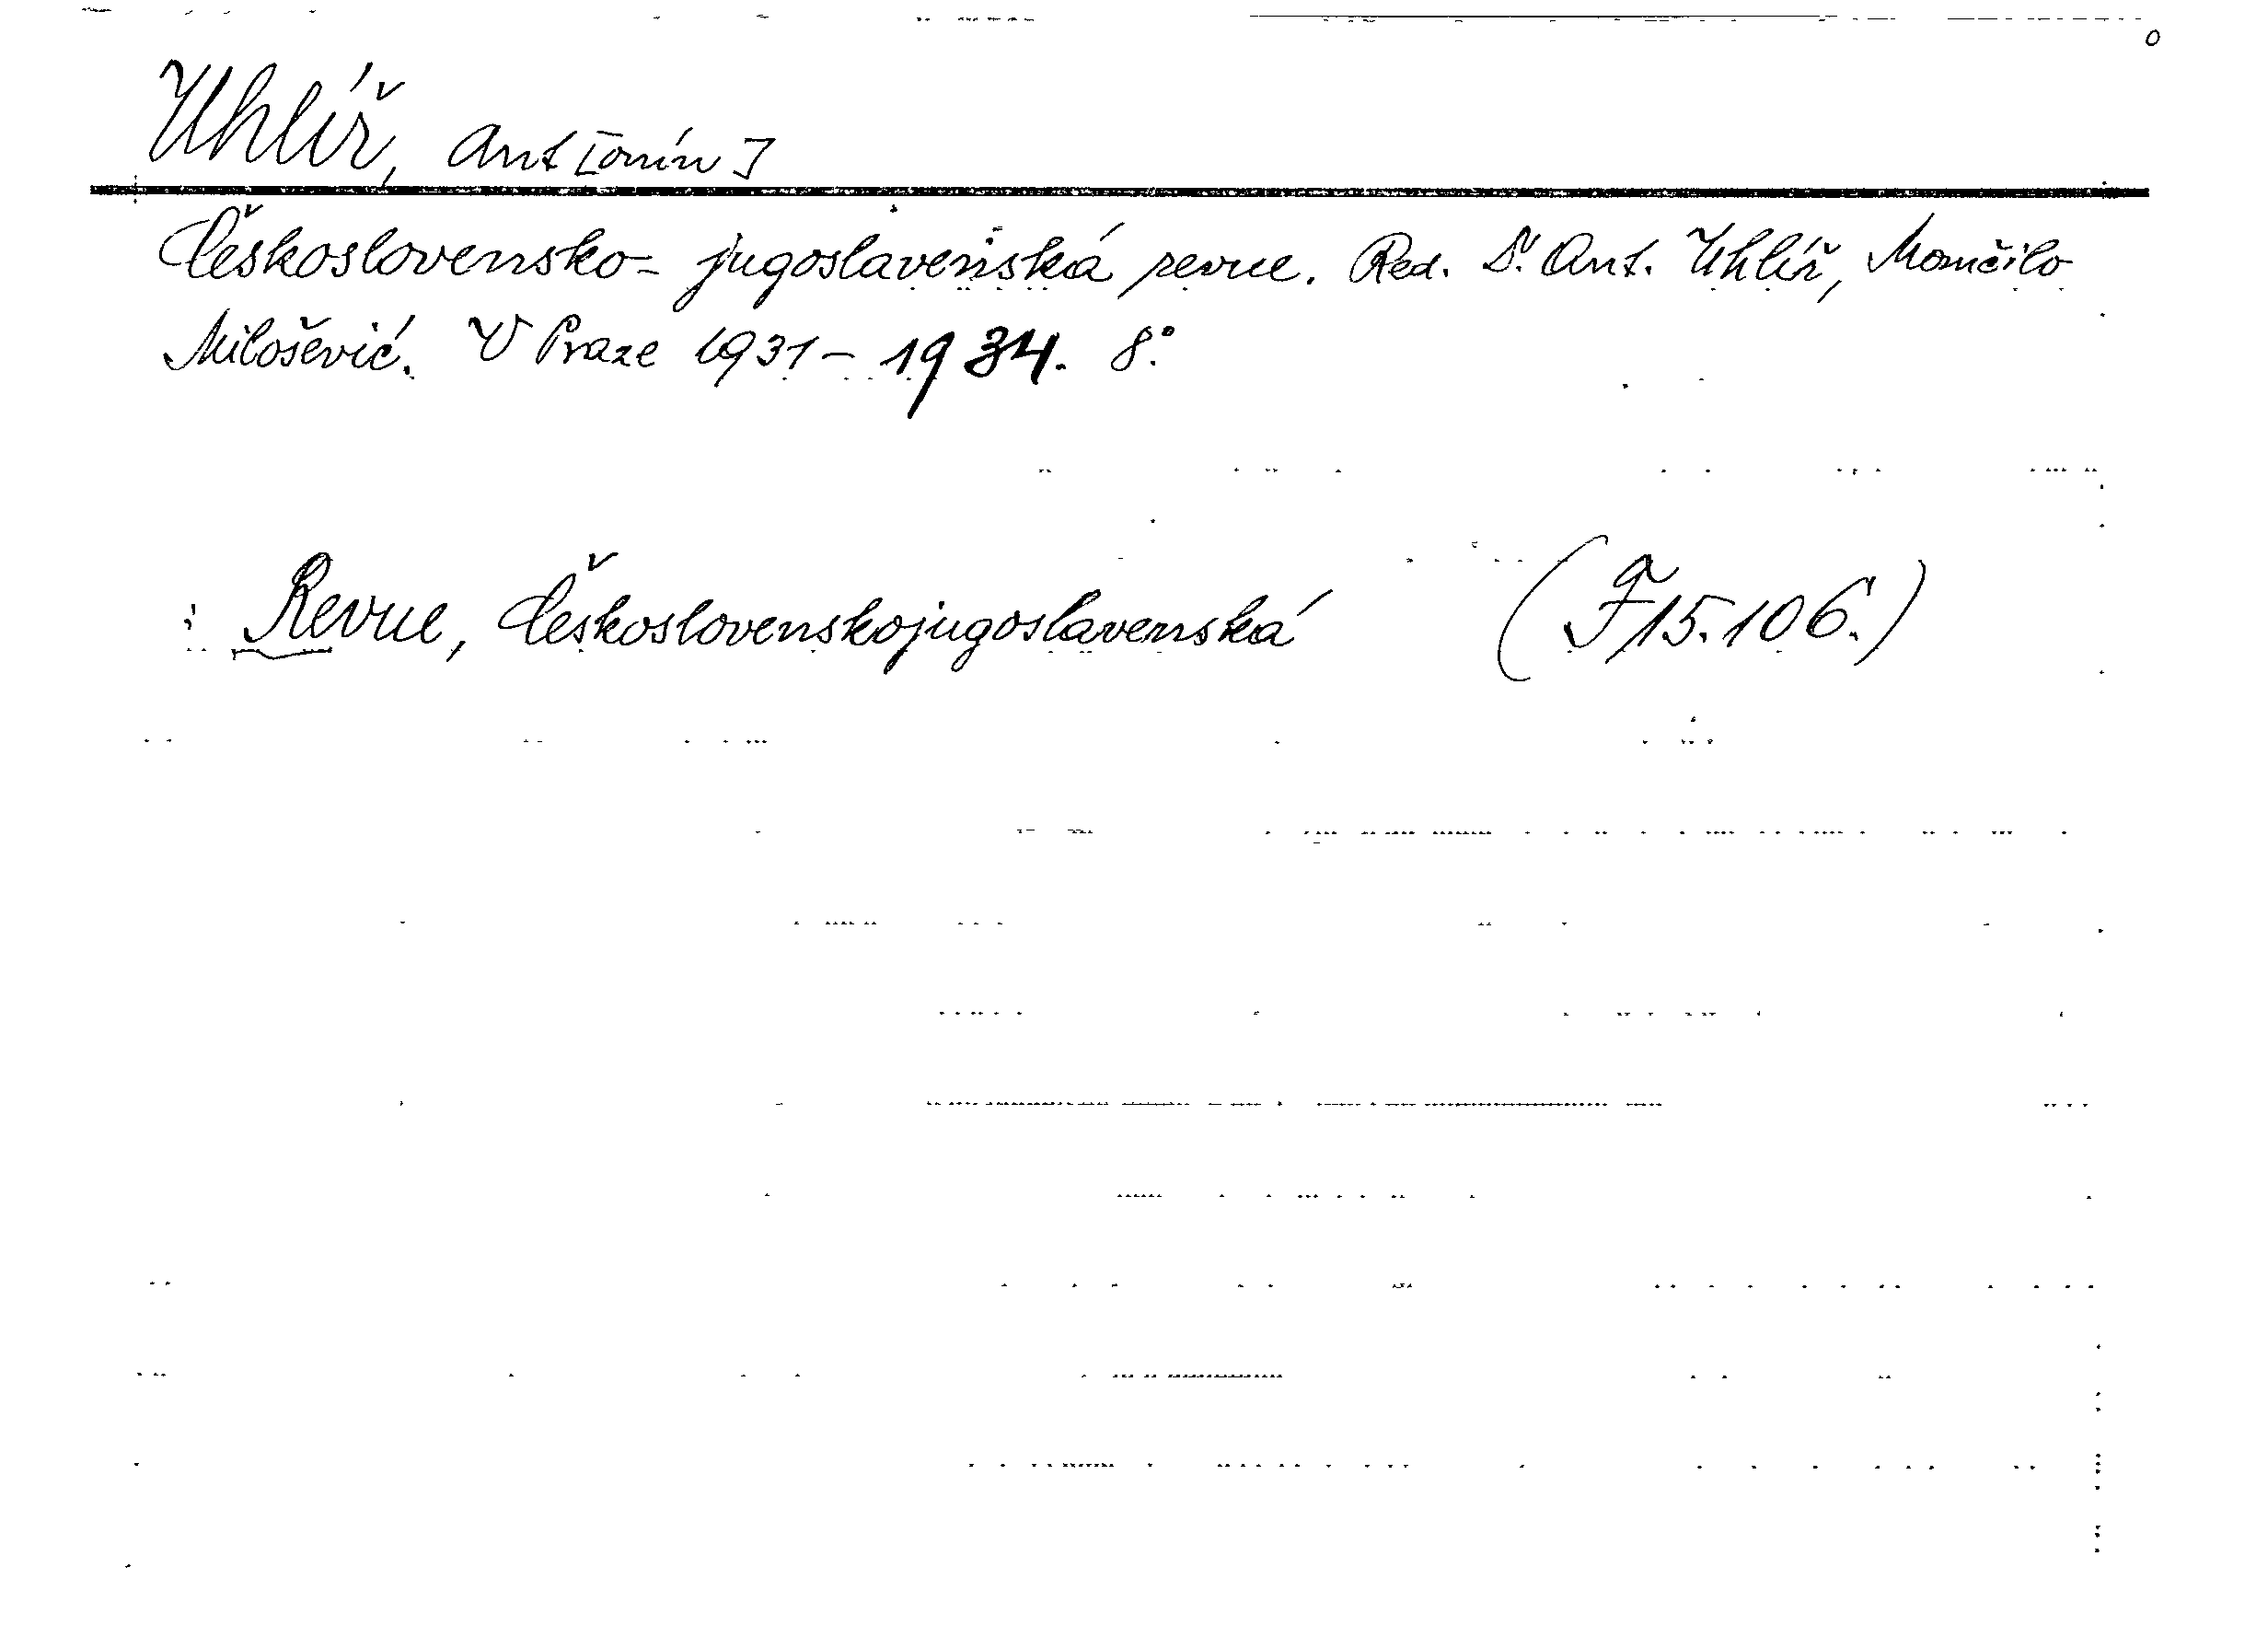 Uhlíř, Ant[onín]
Československo-jugoslavenská revue. Red. Dr. Ant. Uhlíř, Momčilo
Milošević. V Praze 1931-1934. 8°.
: Revue, Československojugoslavenská (F 15.106.)